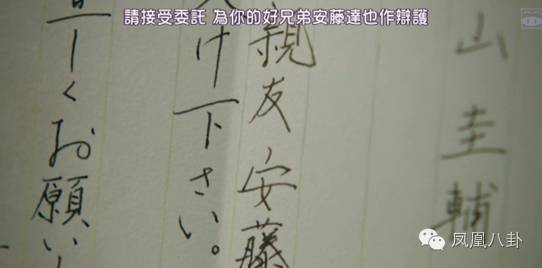 請接受委託 為你的好兄弟安藤達也作辯護
山圭輔
親友安藤
け下さい。
しくお願い
凤凰八卦